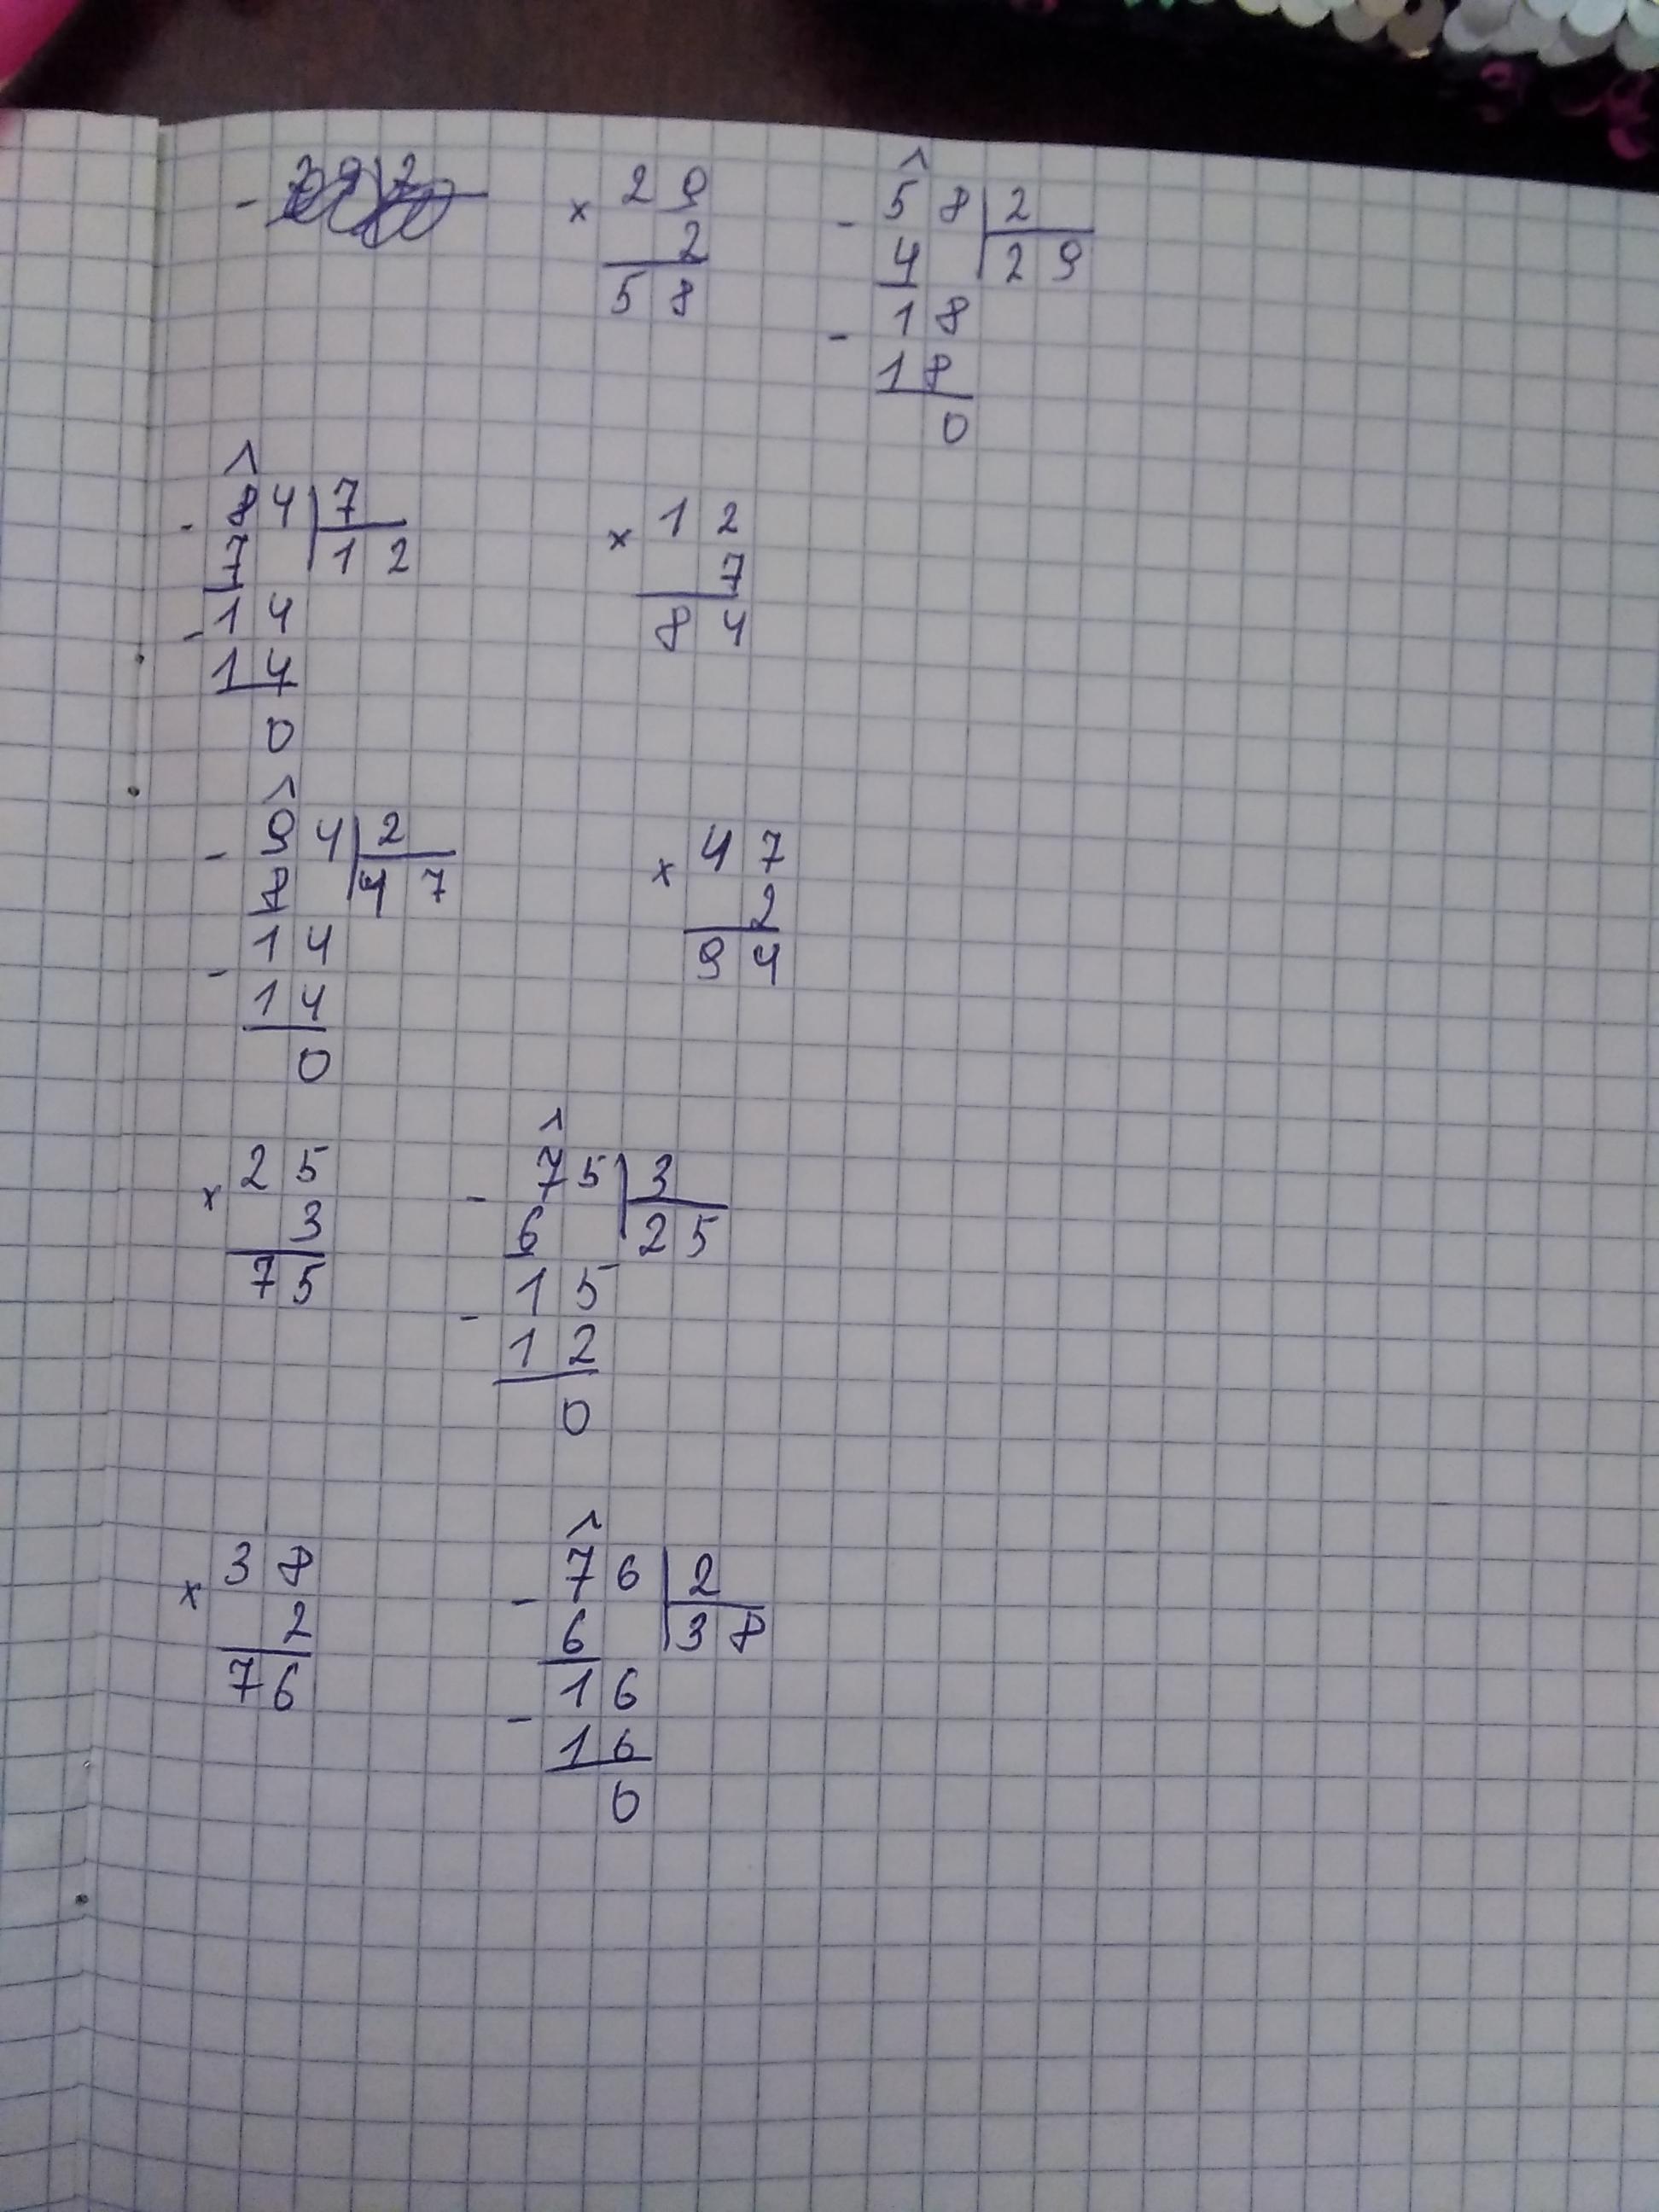 × 29
2
58
- 58 | 2
4 | 29
- 18
18
0
- 84 | 7
7 | 12
- 14
14
0
× 12
7
84
- 94 | 2
8 | 47
- 14
14
0
× 47
2
94
× 25
3
75
- 75 | 3
6 | 25
- 15
12
0
× 38
2
76
- 76 | 2
6 | 38
- 16
16
0